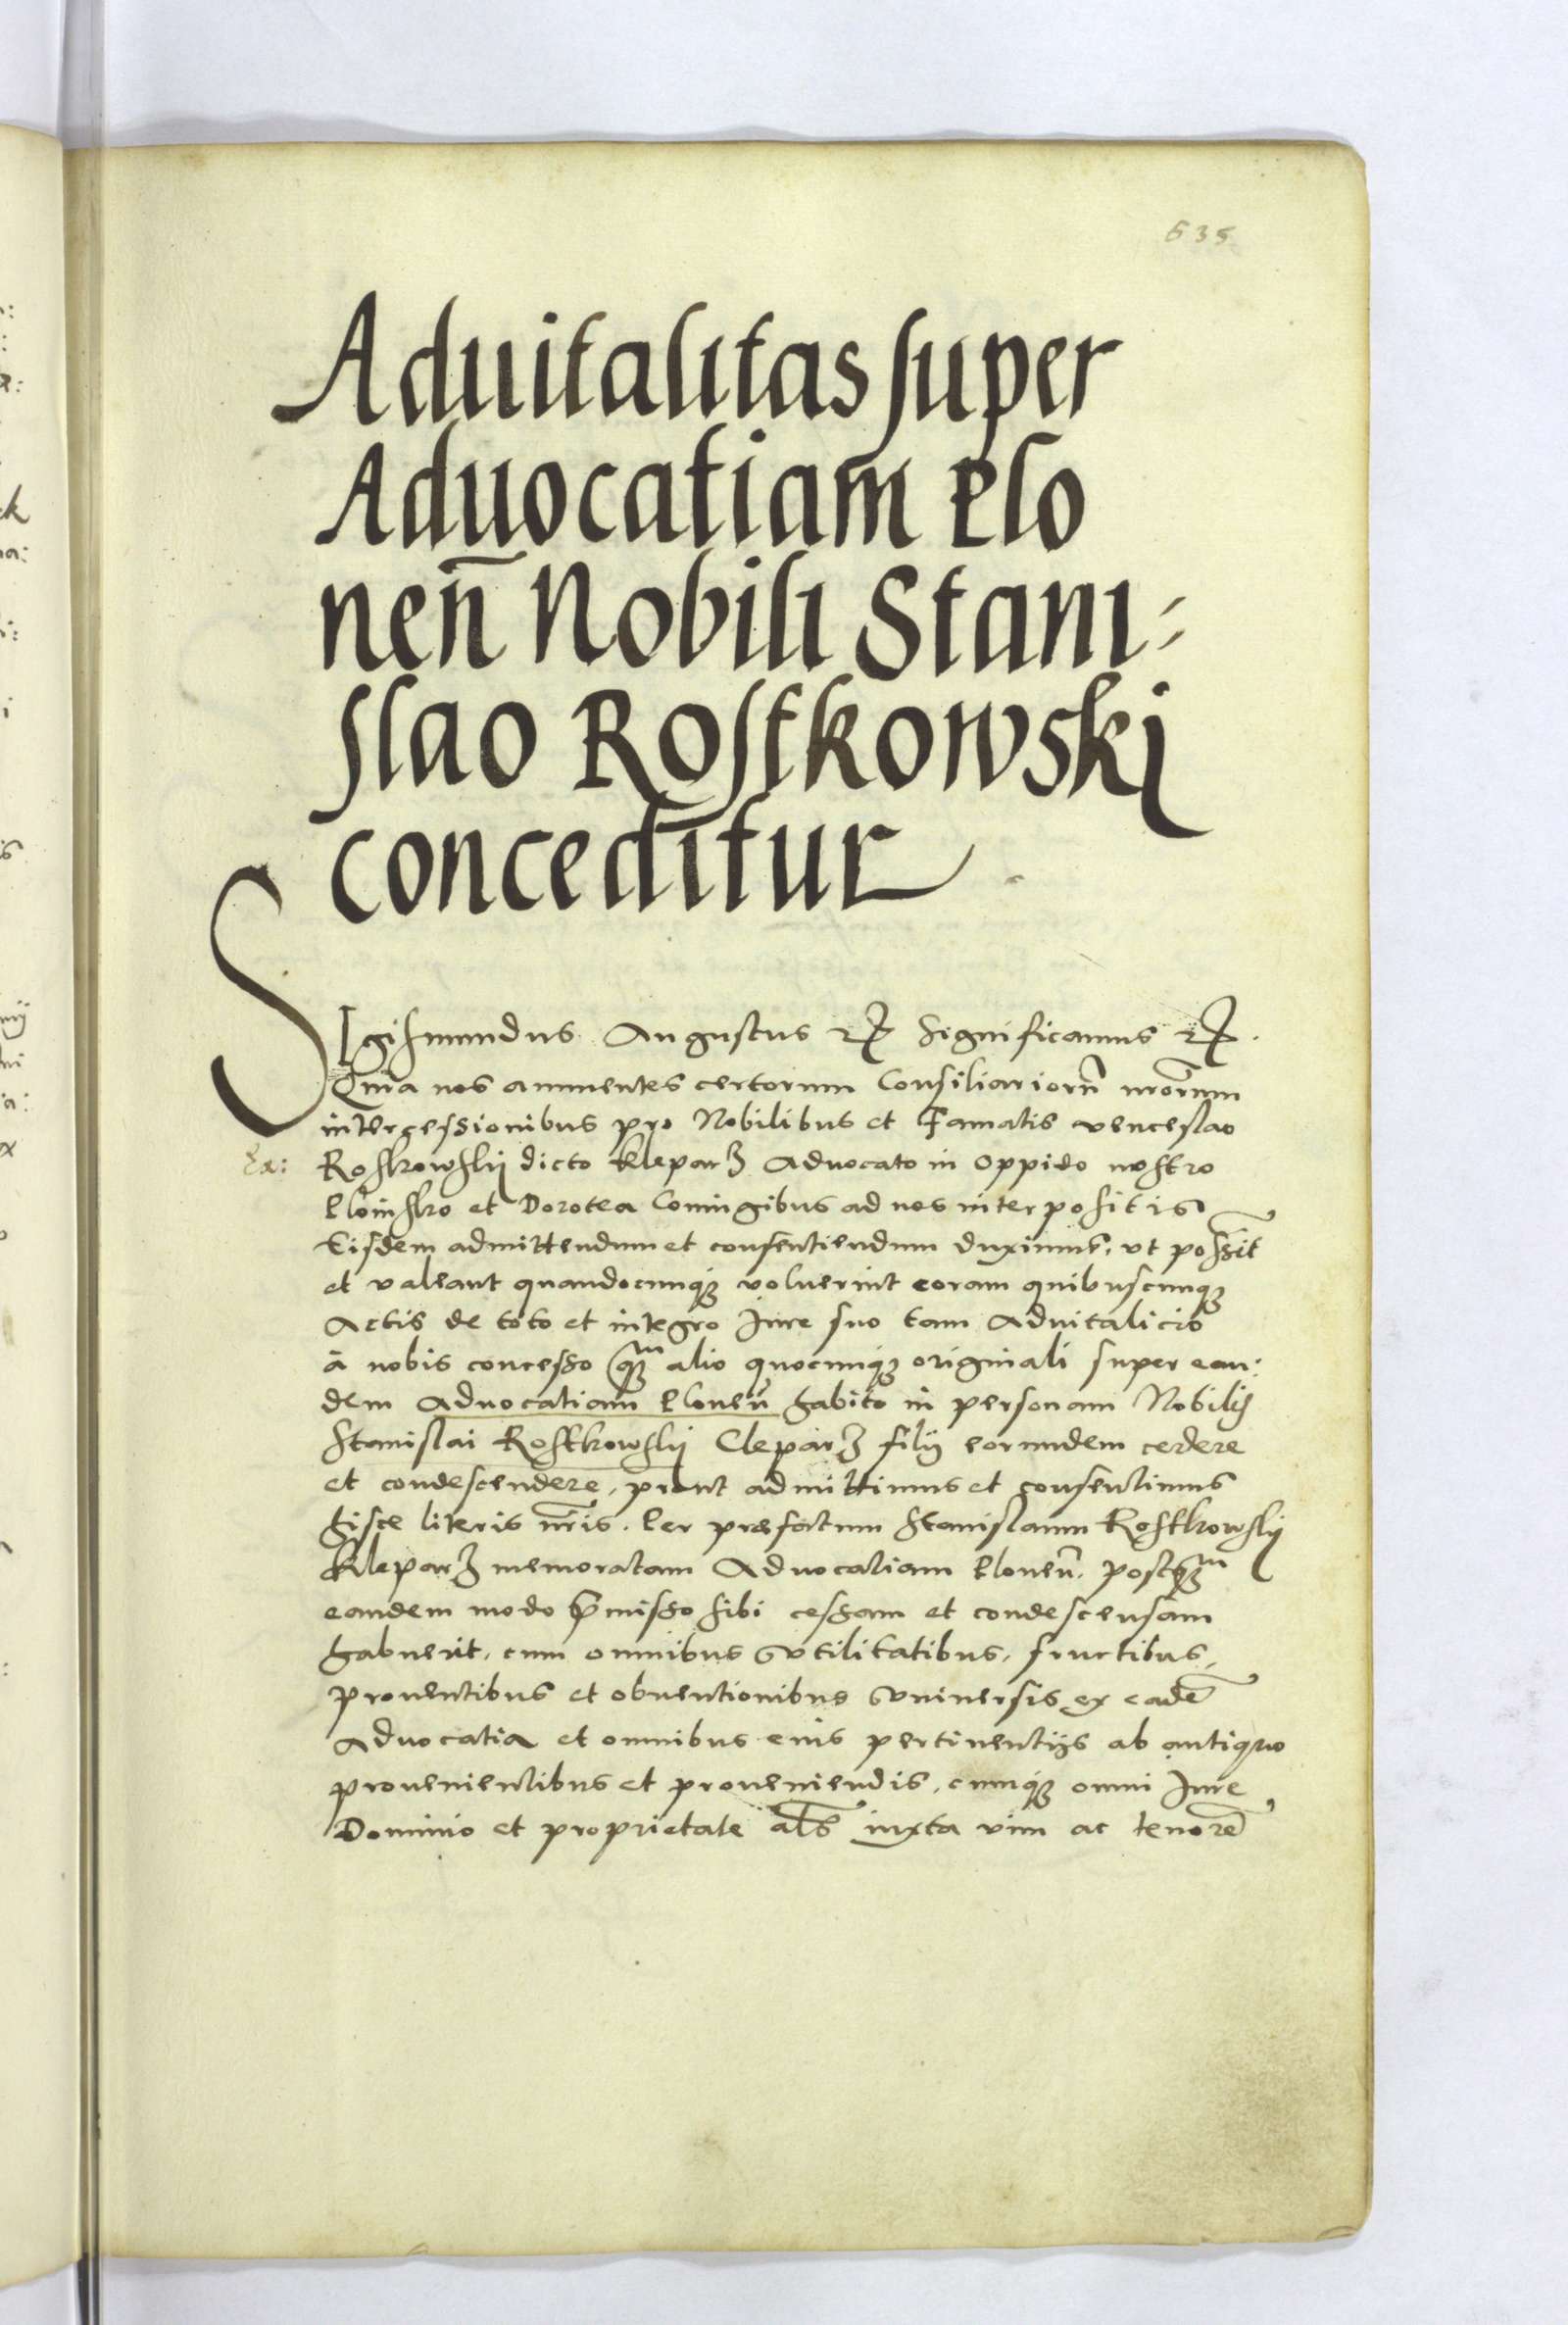 635
Aduitalitas super
Aduocatiam Plo
nen̄ Nobili Stani-
slao Rostkowski
conceditur
SIgismundus Augustus etc Significamus etc.
Quia nos annuentes certorum Consiliariorū nrōrum
intercessionibus pro Nobilibus et Famatis venceslao
Ex:
Rostkowskij dicto kleparz Aduocato in Oppido nostro
Plonsko et Dorotea Coniugibus ad nos interpositis
Eisdem admittendum et consentiendum duximus, vt possīt
et valeant quandocunque voluerint coram quibuscunque
Actis de toto et integro Iure suo tam Aduitalicio
à nobis concesso quam alio quocunque originali super ean:
dem Aduocatiam Plonen̄ habito in personam Nobilis
Stanislai Rostkowskij Cleparz filij eorundem cedere
et condescendere, prout admittimus et consentimus
hisce literis nr̄is. Per praefatum Stanislaum Rostkowskij
kleparz memoratam Aduocatiam Plonen̄. postquam
eandem modo p̄misso sibi cessam et condescensam
habuerit, cum omnibus vtilitatibus, fructibus,
prouentibus et obuentionibus vniuersis ex eadē
Aduocatia et omnibus eius pertinentijs ab antiquo
prouenientibus et proueniendis, cumque omni Iure
Dominio et proprietate als̄ iuxta vim ac tenorē